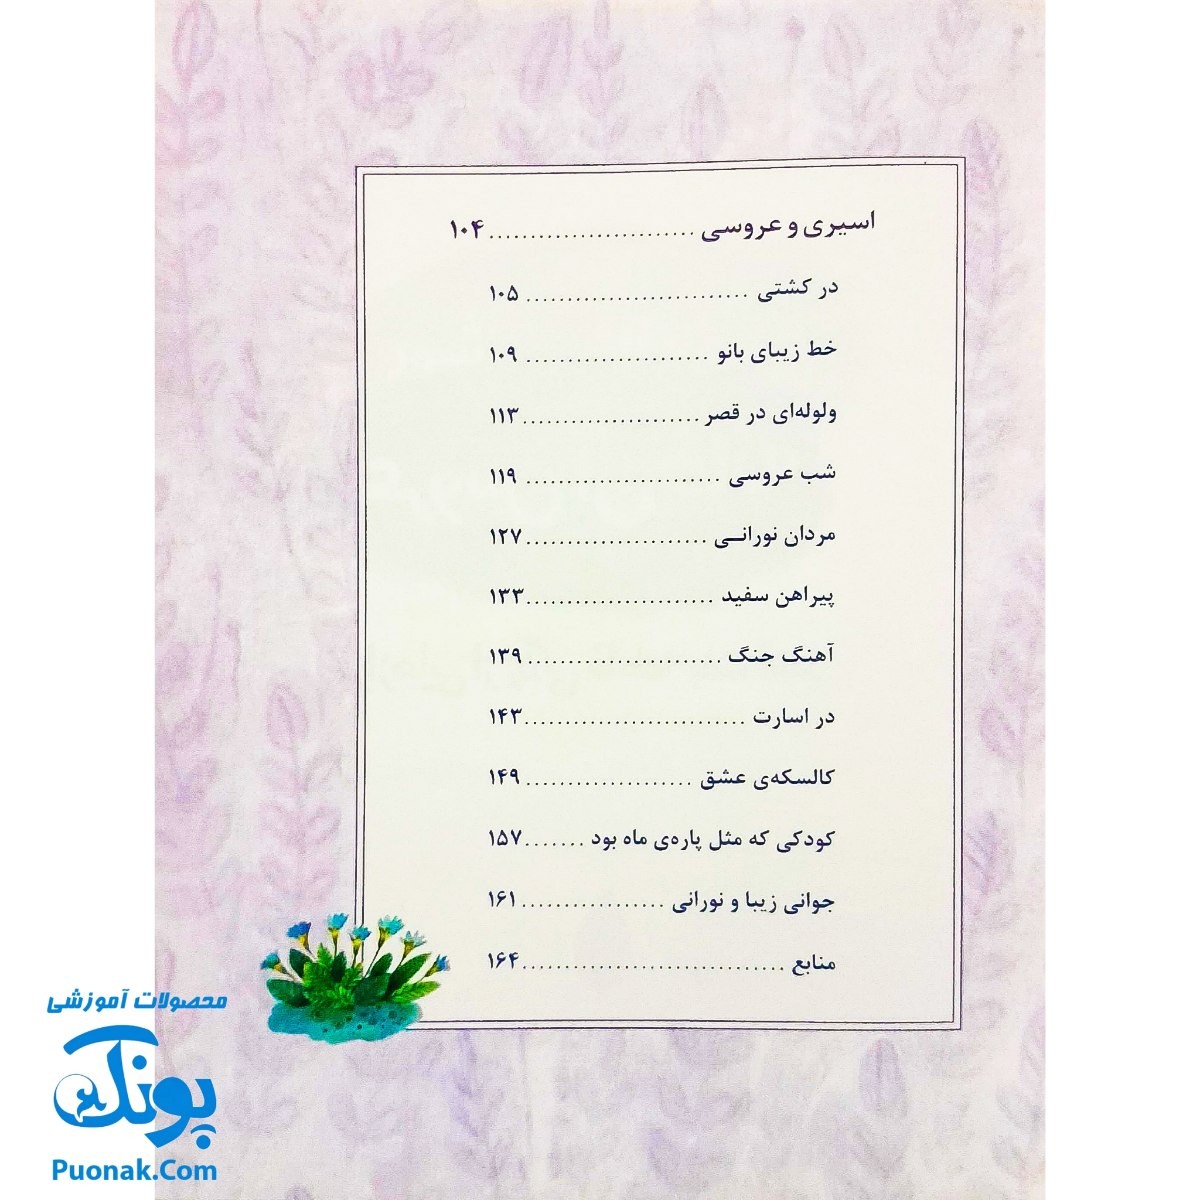 اسیری و عروسی ......................... ۱۰۴
در کشتی ........................... ۱۰۵
خط زیبای بانو ...................... ۱۰۹
ولوله‌ای در قصر ...................... ۱۱۳
شب عروسی ........................ ۱۱۹
مردان نورانـی ...................... ۱۲۷
پیراهن سفید ....................... ۱۳۳
آهنگ جنگ ........................ ۱۳۹
در اسارت ........................... ۱۴۳
کالسکه‌ی عشق .................... ۱۴۹
کودکی که مثل پاره‌ی ماه بود ....... ۱۵۷
جوانی زیبا و نورانی ................. ۱۶۱
منابع ................................ ۱۶۴
محصولات آموزشی
پونک
Puonak.Com